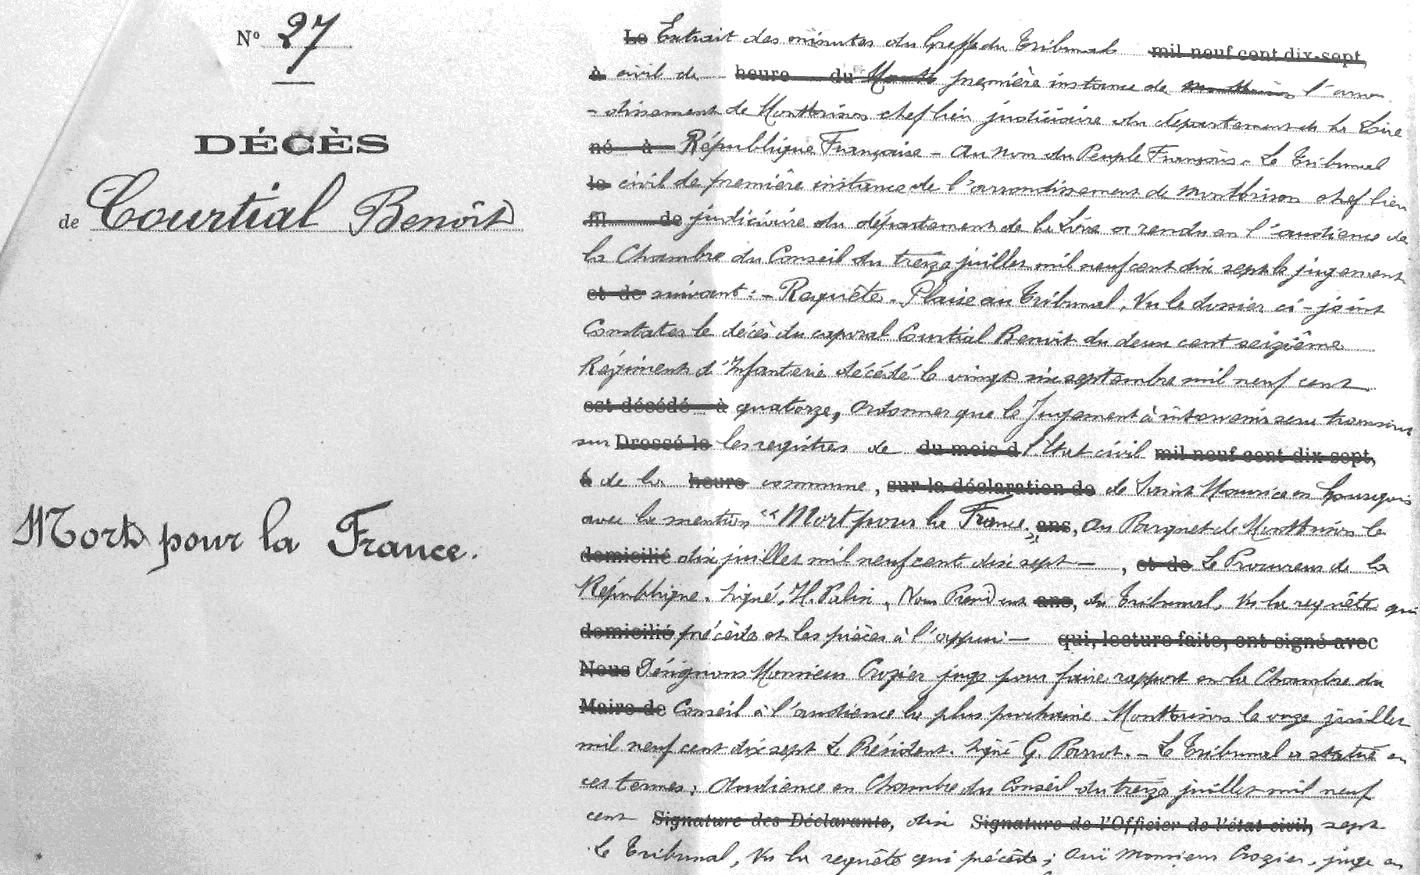 N° 27
DÉCÈS
de Courtial Benoît
Mort pour la France.
Le Extrait des minutes du Greffe du Tribunal mil neuf cent dix-sept,
à civil de heure du première instance de l'arron
-dissement de Montbrison chef lieu judiciaire du département de la Loire
né à République Française - Au nom du Peuple Français - Le Tribunal
le civil de première instance de l'arrondissement de Montbrison chef lieu
fil de judiciaire du département de la Loire a rendu en l'audience de
la Chambre du Conseil du treize juillet mil neuf cent dix sept le jugement
et de suivant : - Requête - Plaise au Tribunal, Vu le dossier ci-joint
Constater le décès du caporal Courtial Benoit du deux cent seizième
Régiment d'Infanterie décédé le vingt six septembre mil neuf cent
est décédé à quatorze, ordonner que le Jugement à intervenir sera transcrit
sur Dressé le les registres de du mois d l'Etat civil mil neuf cent dix-sept,
à de la heure commune, sur la déclaration de de Saint Maurice en Gourgois
avec la mention "Mort pour la France" ans, Au Parquet de Montbrison le
domicilié dix juillet mil neuf cent dix sept - , et de Le Procureur de la
République. Signé, H. Palin, Nous Président ans, du Tribunal, Vu la requête qui
domicilié précède et les pièces à l'appui - qui, lecture faite, ont signé avec
Nous Désignons Monsieur Crozier juge pour faire rapport en la Chambre du
Maire de Conseil à l'audience la plus prochaine. Montbrison le onze juillet
mil neuf cent dix sept Le Président. Signé G. Parrot. - Le Tribunal a statué en
ces termes ; Audience en Chambre du Conseil du treize juillet mil neuf
cent Signature des Déclarants, dix Signature de l'Officier de l'état civil, sept
Le Tribunal, Vu la requête qui précède ; Ouï Monsieur Crozier, juge en